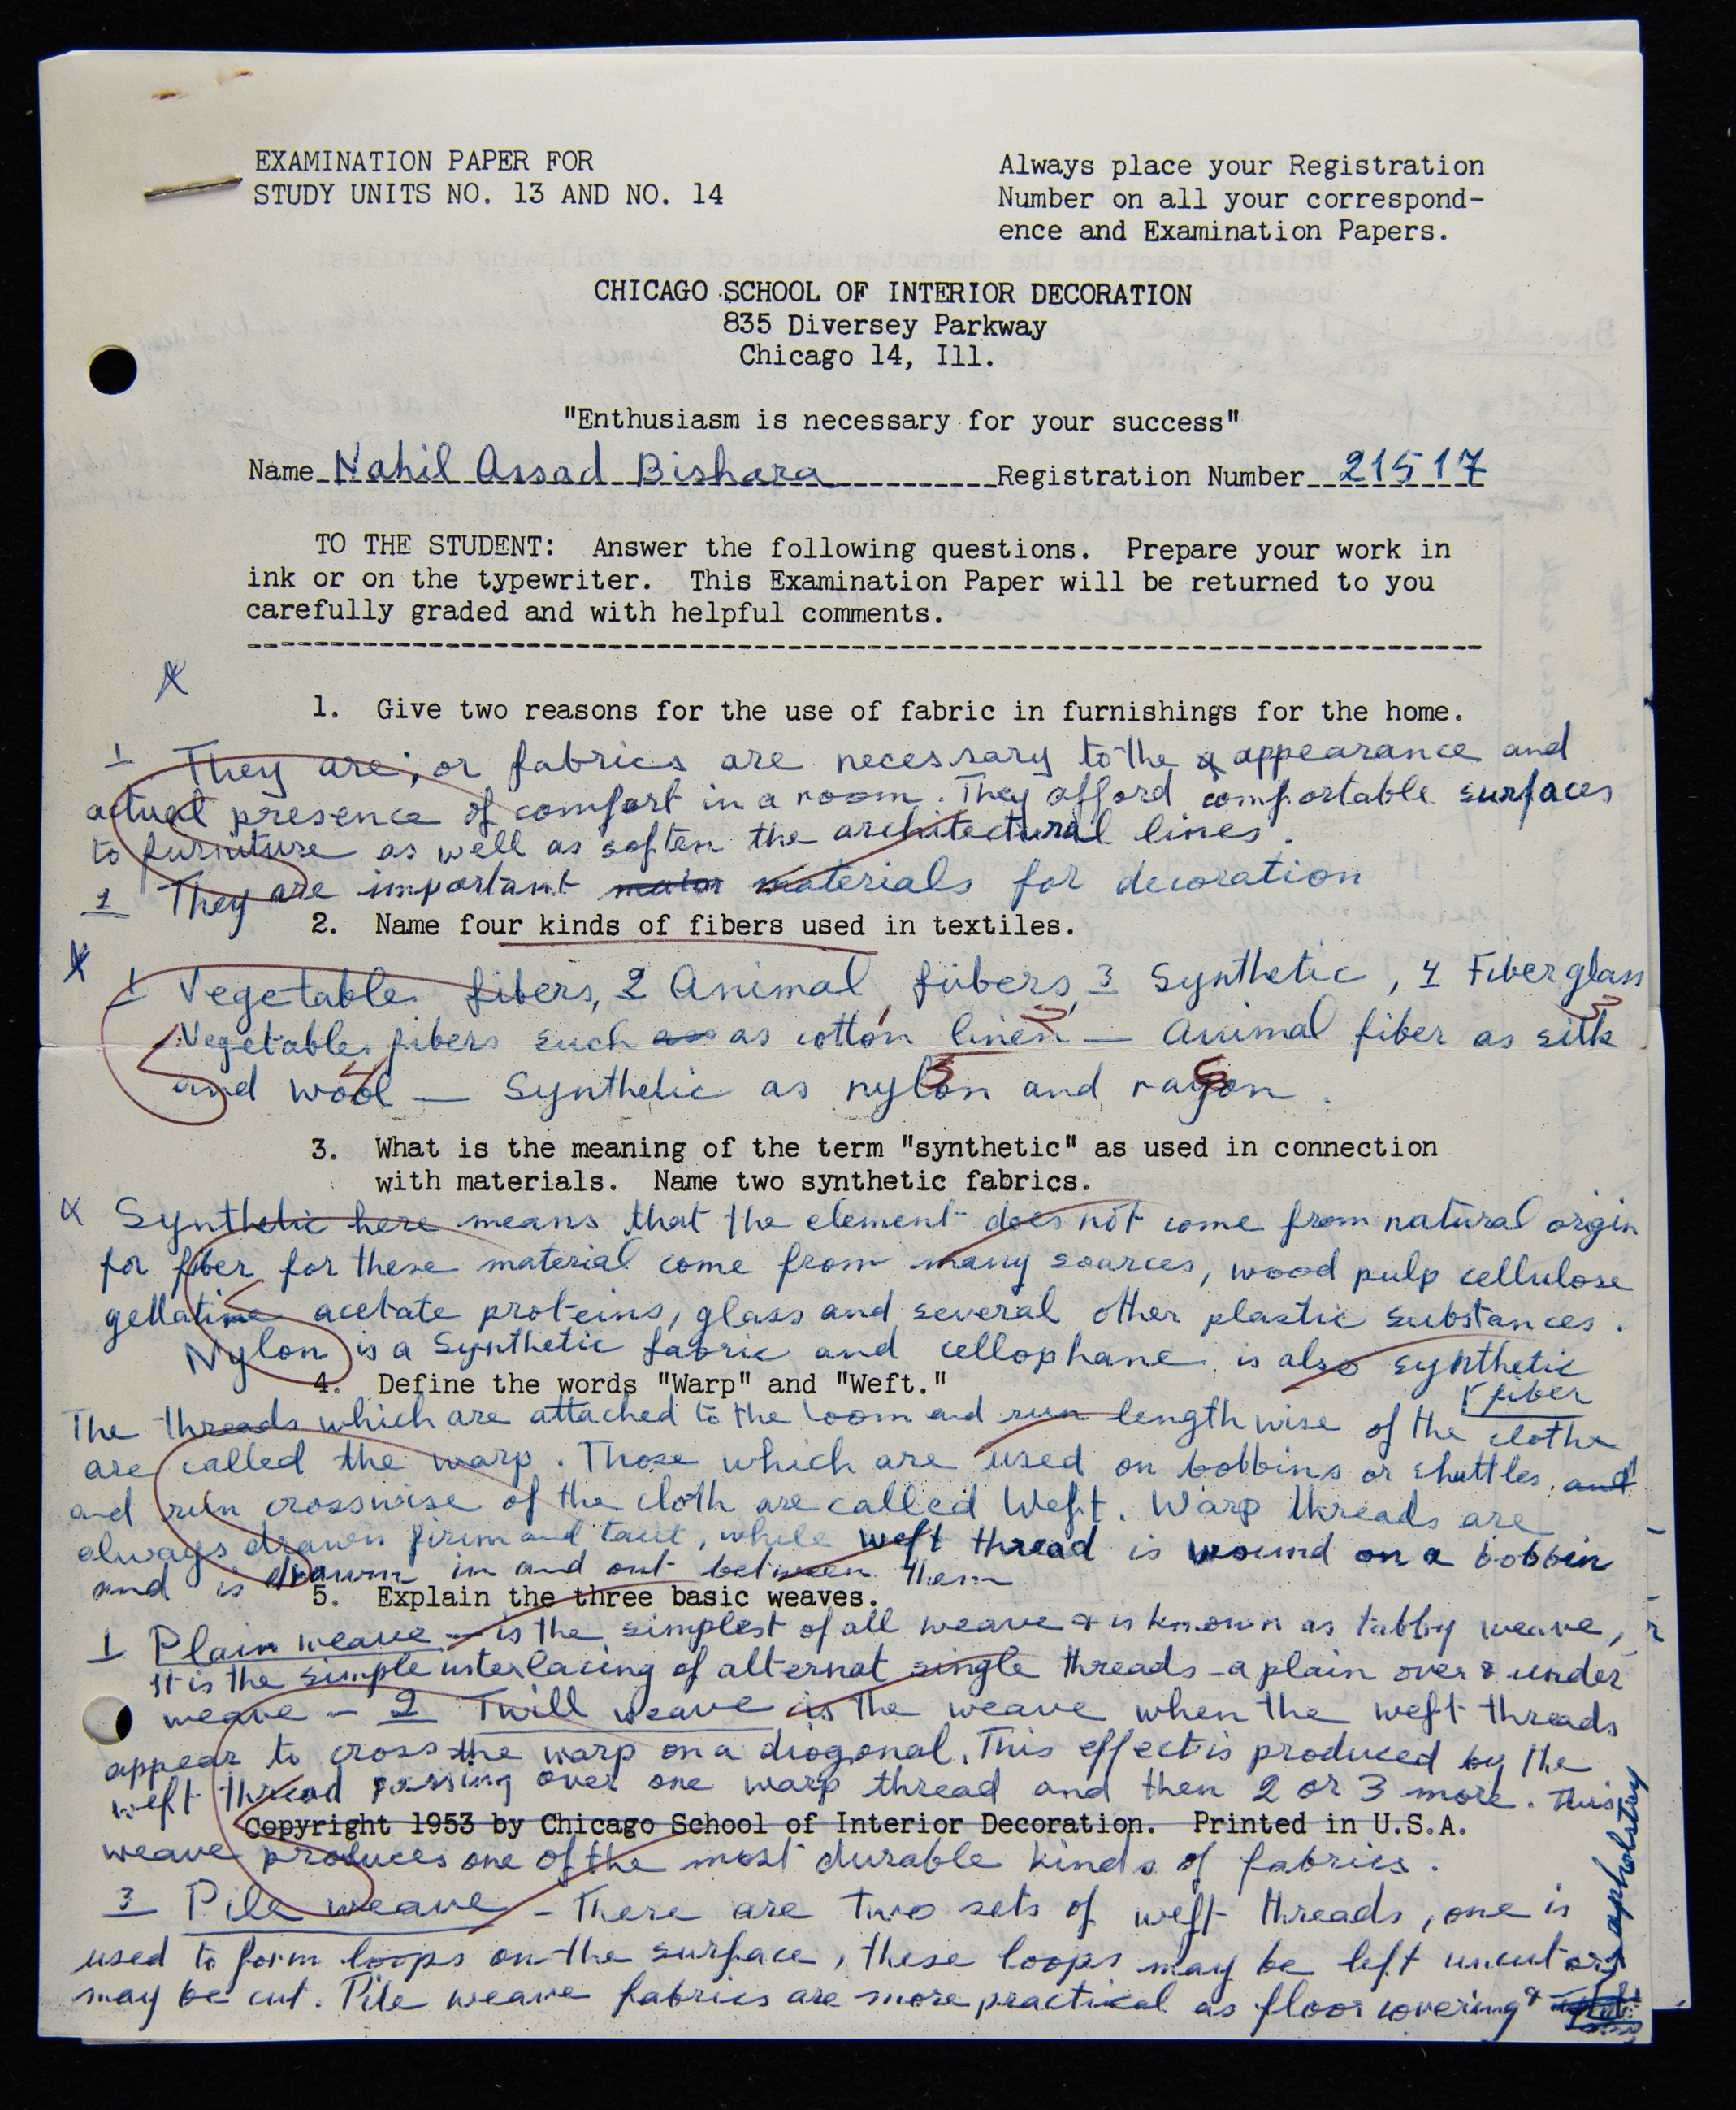 EXAMINATION PAPER FOR
STUDY UNITS NO. 13 AND NO. 14
Always place your Registration
Number on all your correspond-
ence and Examination Papers.
CHICAGO SCHOOL OF INTERIOR DECORATION
835 Diversey Parkway
Chicago 14, Ill.
"Enthusiasm is necessary for your success"
Name Nahil Assad Bishara Registration Number 21517
TO THE STUDENT: Answer the following questions. Prepare your work in
ink or on the typewriter. This Examination Paper will be returned to you
carefully graded and with helpful comments.
X
1. Give two reasons for the use of fabric in furnishings for the home.
1 They are; or fabrics are necessary to the appearance and
actual presence of comfort in a room. They afford comfortable surfaces
to furniture as well as soften the architectural lines.
2 They are important major materials for decoration
2. Name four kinds of fibers used in textiles.
X
1 Vegetable fibers, 2 Animal fibers, 3 Synthetic, 4 Fiberglass
Vegetable fibers such as as cotton linen — Animal fiber as silk
and wool — Synthetic as nylon and rayon.
3. What is the meaning of the term "synthetic" as used in connection
with materials. Name two synthetic fabrics.
X Synthetic here means that the element does not come from natural origin
for fiber for these material come from many sources, wood pulp cellulose
gellatine acetate proteins, glass and several other plastic substances.
Nylon is a Synthetic fabric and cellophane is also synthetic
fiber
4. Define the words "Warp" and "Weft."
The threads which are attached to the loom and run lengthwise of the clothe
are called the warp. Those which are used on bobbins or shuttles and
and run crosswise of the cloth are called Weft. Warp threads are
always drawn firm and taut, while weft thread is wound on a bobbin
and is drawn in and out between them
5. Explain the three basic weaves.
1 Plain weave – is the simplest of all weave & is known as tabby weave,
It is the simple interlacing of alternat single threads - a plain over & under
weave – 2 Twill weave is the weave when the weft threads
appear to cross the warp on a diogonal. This effect is produced by the
weft thread passing over one warp thread and then 2 or 3 more. This
Copyright 1953 by Chicago School of Interior Decoration. Printed in U.S.A.
weave produces one of the most durable kinds of fabrics.
3 Pile weave – There are two sets of weft threads, one is
used to form loops on the surface, these loops may be left uncut or
may be cut. Pile weave fabrics are more practical as floor covering &
upholstry